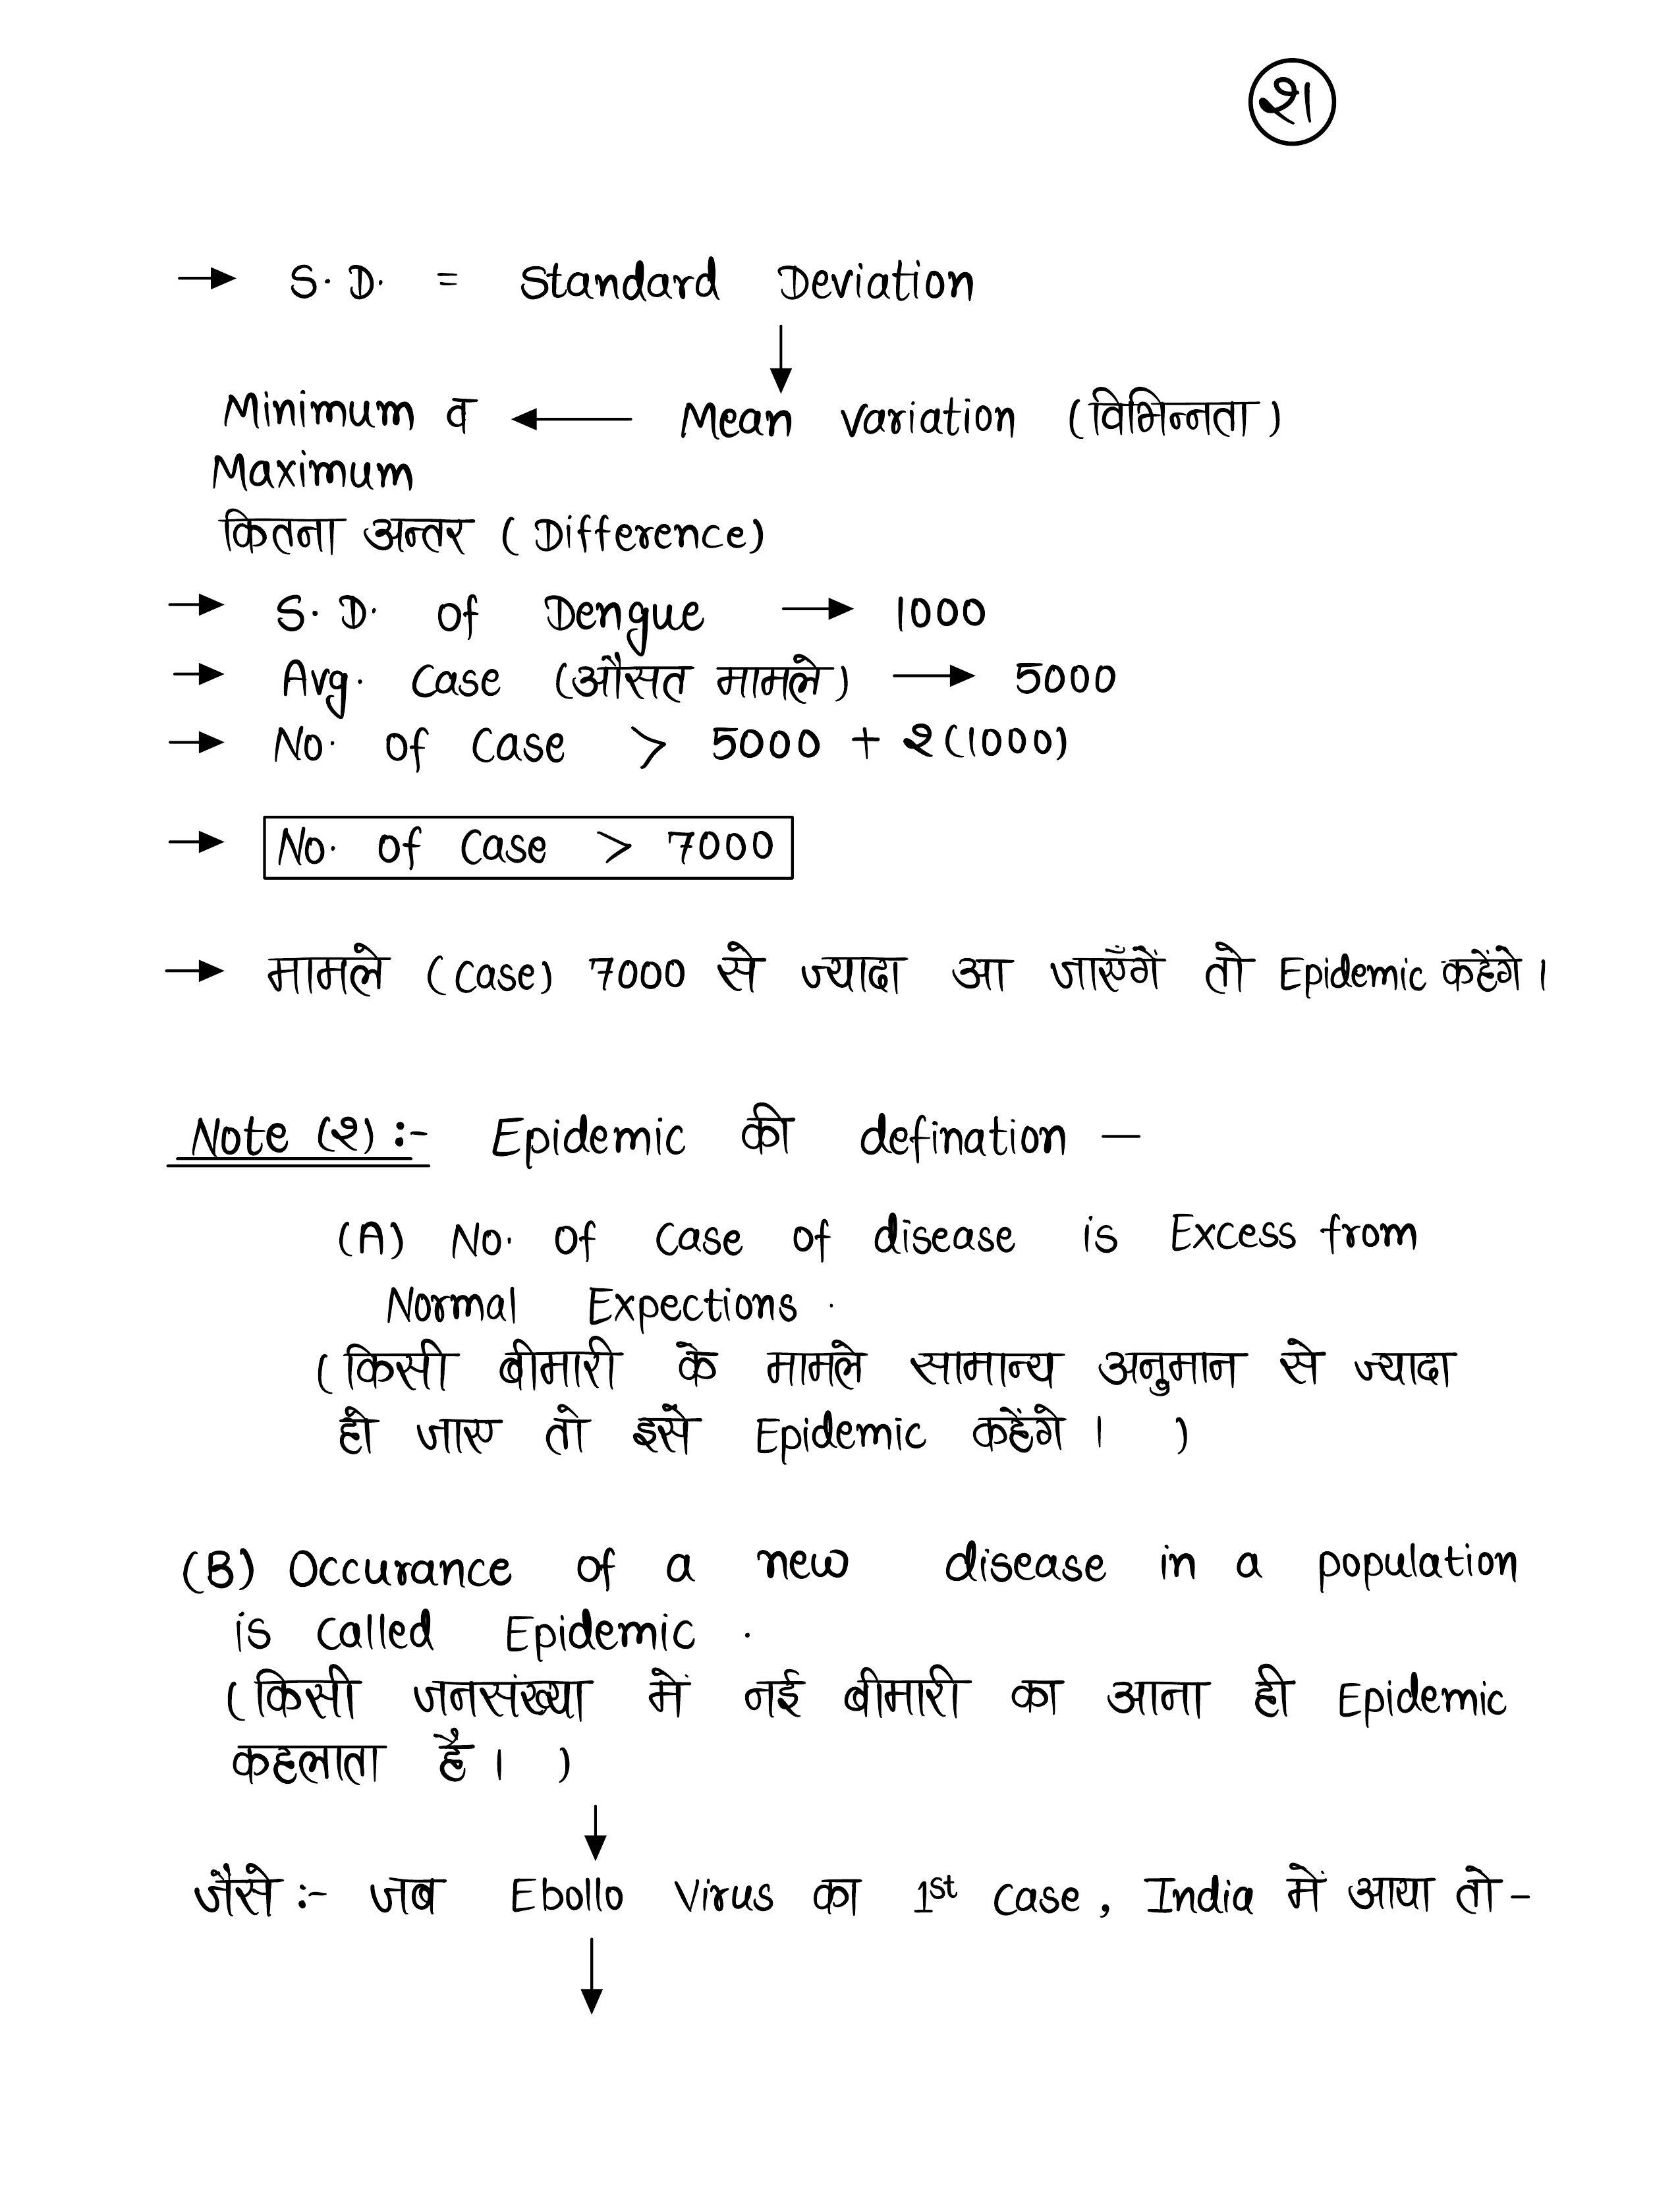 21
→ S. D. = Standard Deviation
↓
Minimum व ← Mean variation (विभिन्नता)
Maximum
कितना अन्तर (Difference)
→ S. D. of Dengue → 1000
→ Avg. Case (औसत मामले) → 5000
→ No. of Case > 5000 + 2(1000)
→ No. of Case > 7000
→ मामले (Case) 7000 से ज्यादा आ जाएँगें तो Epidemic कहेंगे।
Note (2) :- Epidemic की defination —
(A) No. of Case of disease is Excess from
Normal Expections .
(किसी बीमारी के मामले सामान्य अनुमान से ज्यादा
हो जाए तो इसे Epidemic कहेंगे। )
(B) Occurance of a new disease in a population
is called Epidemic .
(किसी जनसंख्या में नई बीमारी का आना ही Epidemic
कहलाता है। )
↓
जैसे :- जब Ebollo Virus का 1st case, India में आया तो -
↓